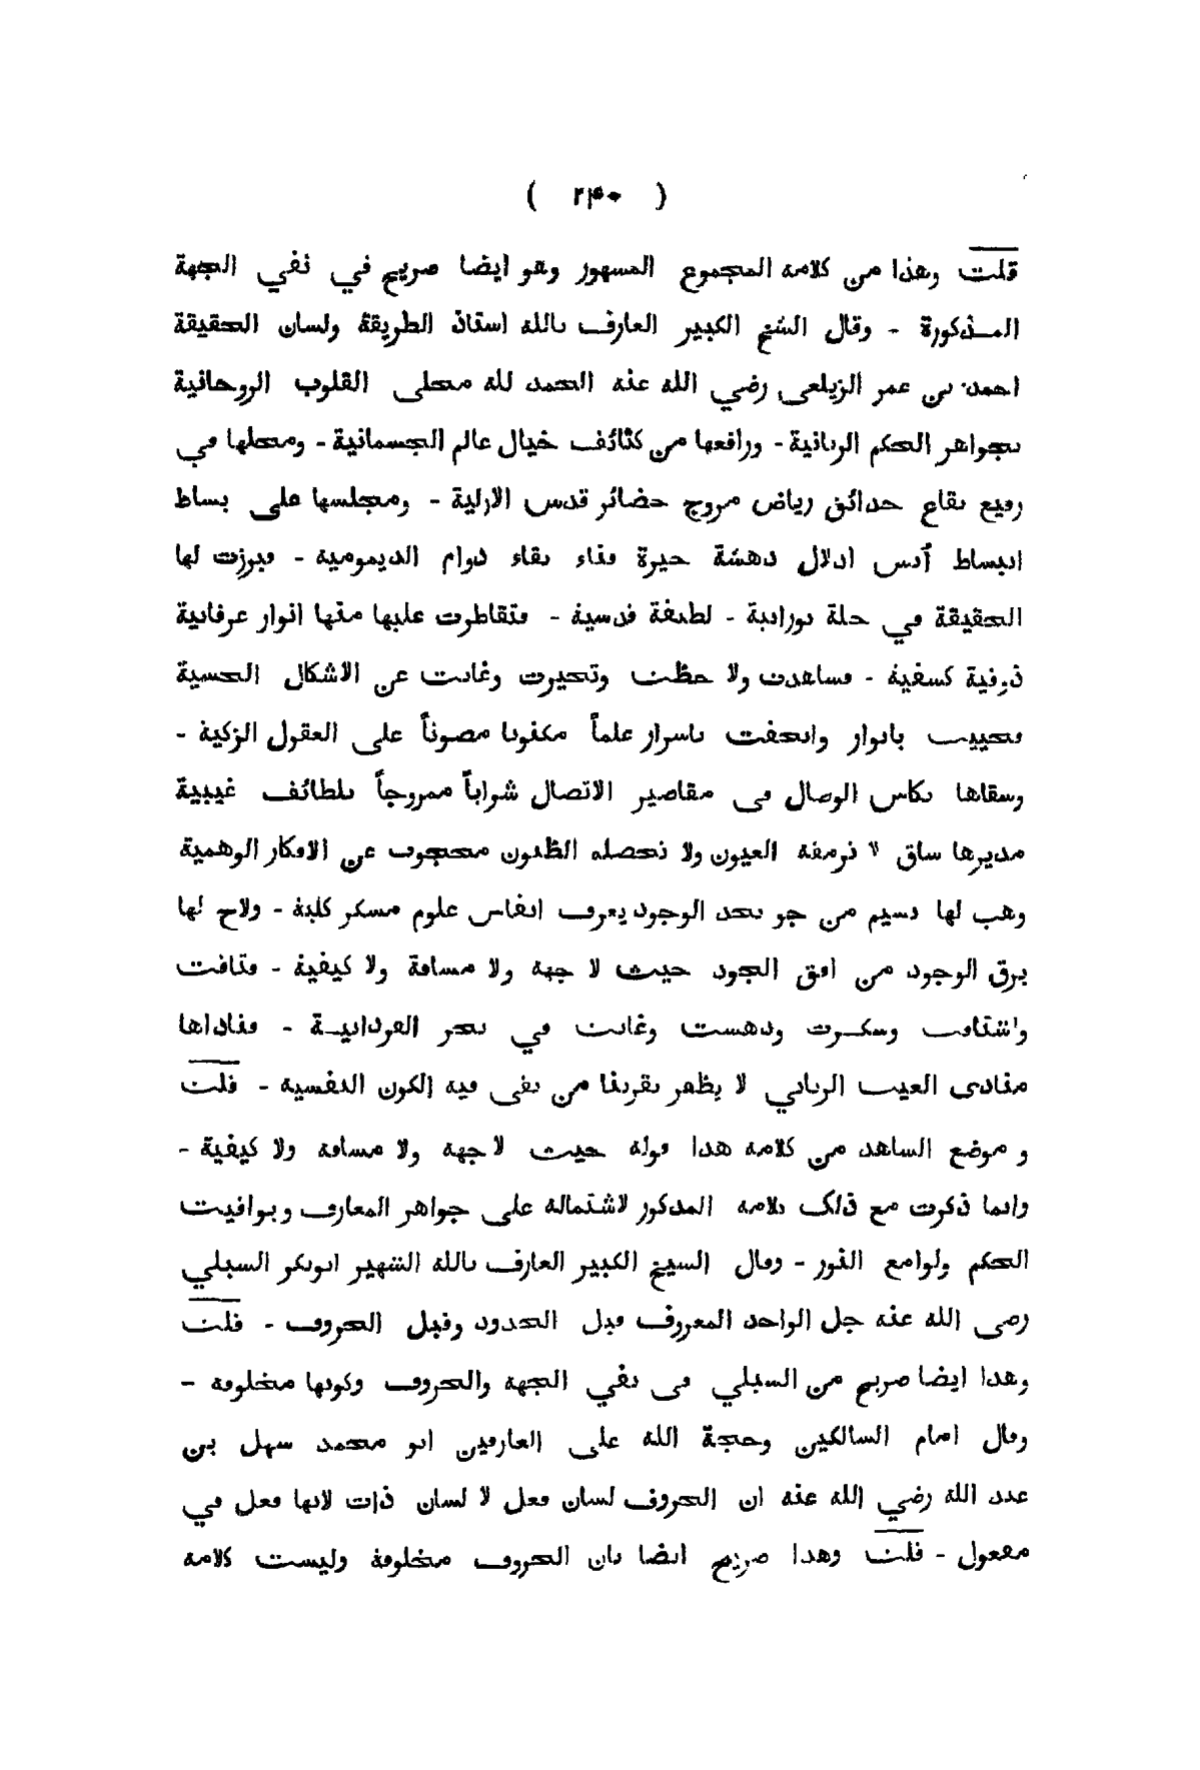 ( ٢٤٠ )
قلت وهذا من كلامه المجموع المشهور وهو ايضا صريح في نفي الجهة
المذكورة - وقال الشيخ الكبير العارف بالله استاذ الطريقة ولسان الحقيقة
احمد بن عمر الزيلعي رضي الله عنه الحمد لله محلى القلوب الروحانية
بجواهر الحكم الربانية - ورافعها من كثائف خيال عالم الجسمانية - ومحلها في
رفيع بقاع حدائق رياض مروج حضائر قدس الازلية - ومجلسها على بساط
انبساط أنس ادلال دهشة حيرة فناء بقاء دوام الديمومية - فبرزت لها
الحقيقة في حلة نورانية - لطيفة قدسية - فتقاطرت عليها منها انوار عرفانية
ذوقية كشفية - فشاهدت ولا حظت وتحيرت وغابت عن الاشكال الحسية
فحييت بانوار واتحفت باسرار علماً مكنونا مصوناً على العقول الزكية -
وسقاها بكاس الوصال فى مقاصير الاتصال شراباً ممروجاً بلطائف غيبية
مديرها ساق لا ترمقه العيون ولا تحصله الظنون محجوب عن الافكار الوهمية
وهب لها نسيم من جو نجد الوجود يعرف انفاس علوم مسكر كلية - ولاح لها
برق الوجود من افق الجود حيث لا جهة ولا مسافة ولا كيفية - فتاقت
واشتاقت وسكرت ودهشت وغابت في بحر الفردانية - فناداها
منادى الغيب الرباني لا يظفر بقربنا من بقى فيه الكون النفسية - قلت
و موضع الشاهد من كلامه هذا قوله حيث لا جهة ولا مسافة ولا كيفية -
وانما ذكرت مع ذلك كلامه المذكور لاشتماله على جواهر المعارف ويواقيت
الحكم ولوامع النور - وقال الشيخ الكبير العارف بالله الشهير ابوبكر الشبلي
رضى الله عنه جل الواحد المعروف قبل الحدود وقبل الحروف - قلت
وهذا ايضا صريح من الشبلي فى نفي الجهة والحروف وكونها مخلوقة -
وقال امام السالكين وحجة الله على العارفين ابو محمد سهل بن
عبد الله رضي الله عنه ان الحروف لسان فعل لا لسان ذات لانها فعل في
مفعول - قلت وهذا صريح ايضا بان الحروف مخلوقة وليست كلامه